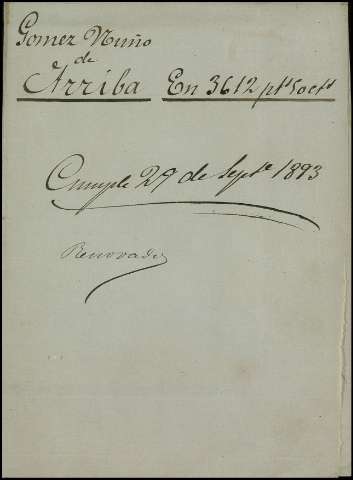 Gomez Nuño
de
Arriba En 3612 pts 50 cts
Cumple 29 de Septe 1893
Renovado